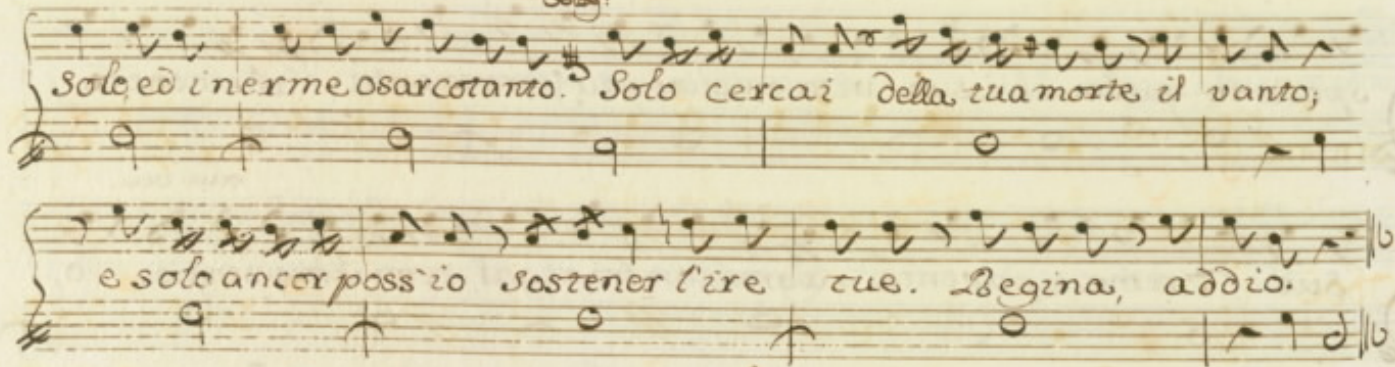 Solo, ed inerme osar cotanto. Solo cercai della tua morte il vanto;
e solo ancor poss'io sostener l'ire tue. Regina, addio.